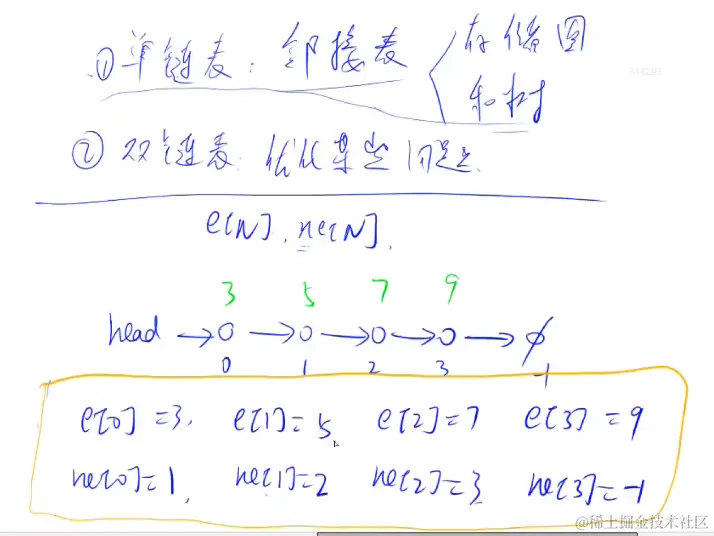 ① 单链表：邻接表 存储图
和树
344293
② 双链表：优化某些问题
e[N], ne[N].
3 5 7 9
head → 0 → 0 → 0 → 0 → ∅
0 1 2 3 -1
e[0]=3, e[1]=5 e[2]=7 e[3]=9
ne[0]=1, ne[1]=2 ne[2]=3 ne[3]=-1
@稀土掘金技术社区